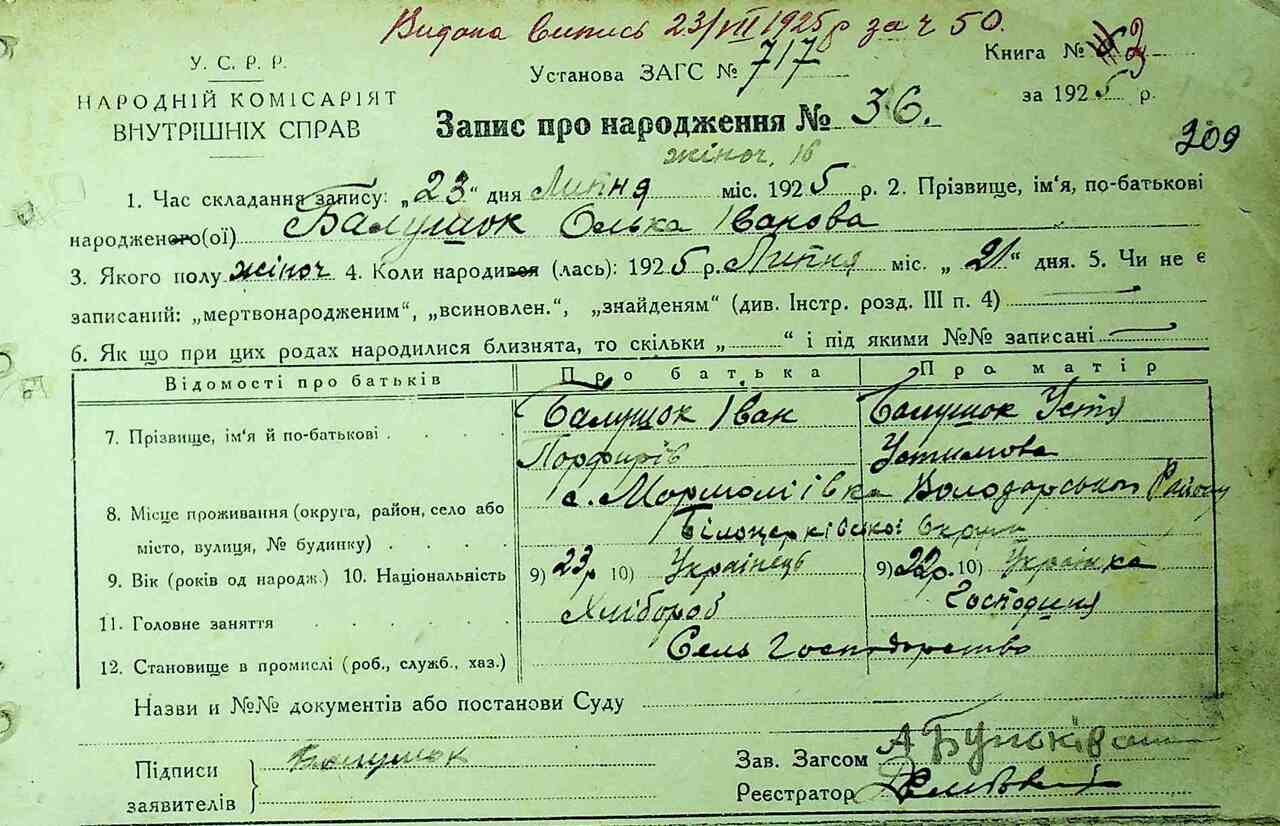 Видана випись 23/VII 1925 р за ч 50.
У. С. Р. Р.
НАРОДНІЙ КОМІСАРІЯТ
ВНУТРІШНІХ СПРАВ
Установа ЗАГС № 717
Книга № 3
за 1925 р.
Запис про народження № 36.
209
жіноч. 16
1. Час складання запису: „23“ дня Липня міс. 1925 р. 2. Прізвище, ім'я, по-батькові
народженого(ої) Балушок Олька Іванова
3. Якого полу жіноч 4. Коли народився (лась): 1925 р. Липня міс. „21“ дня. 5. Чи не є
записаний: „мертвонародженим“, „всиновлен.“, „знайденям“ (див. Інстр. розд. III п. 4)
6. Як що при цих родах народилися близнята, то скільки „ “ і під якими №№ записані
Відомості про батьків Про батька Про матір
7. Прізвище, ім'я й по-батькові Балушок Іван Балушок Устя
Порфирів Устимова
с. Мормоліївка Володарського Району
8. Місце проживання (округа, район, село або
Білоцерківської Округи
місто, вулиця, № будинку)
9. Вік (років од народж.) 10. Національність 9) 23р 10) Українець 9) 22р. 10) Українка
11. Головне заняття Хлібороб Господиня
12. Становище в промислі (роб., служб., хаз.) Сель Господарство
Назви и №№ документів або постанови Суду
Підписи
заявителів Балушок
Зав. Загсом А
Реєстратор